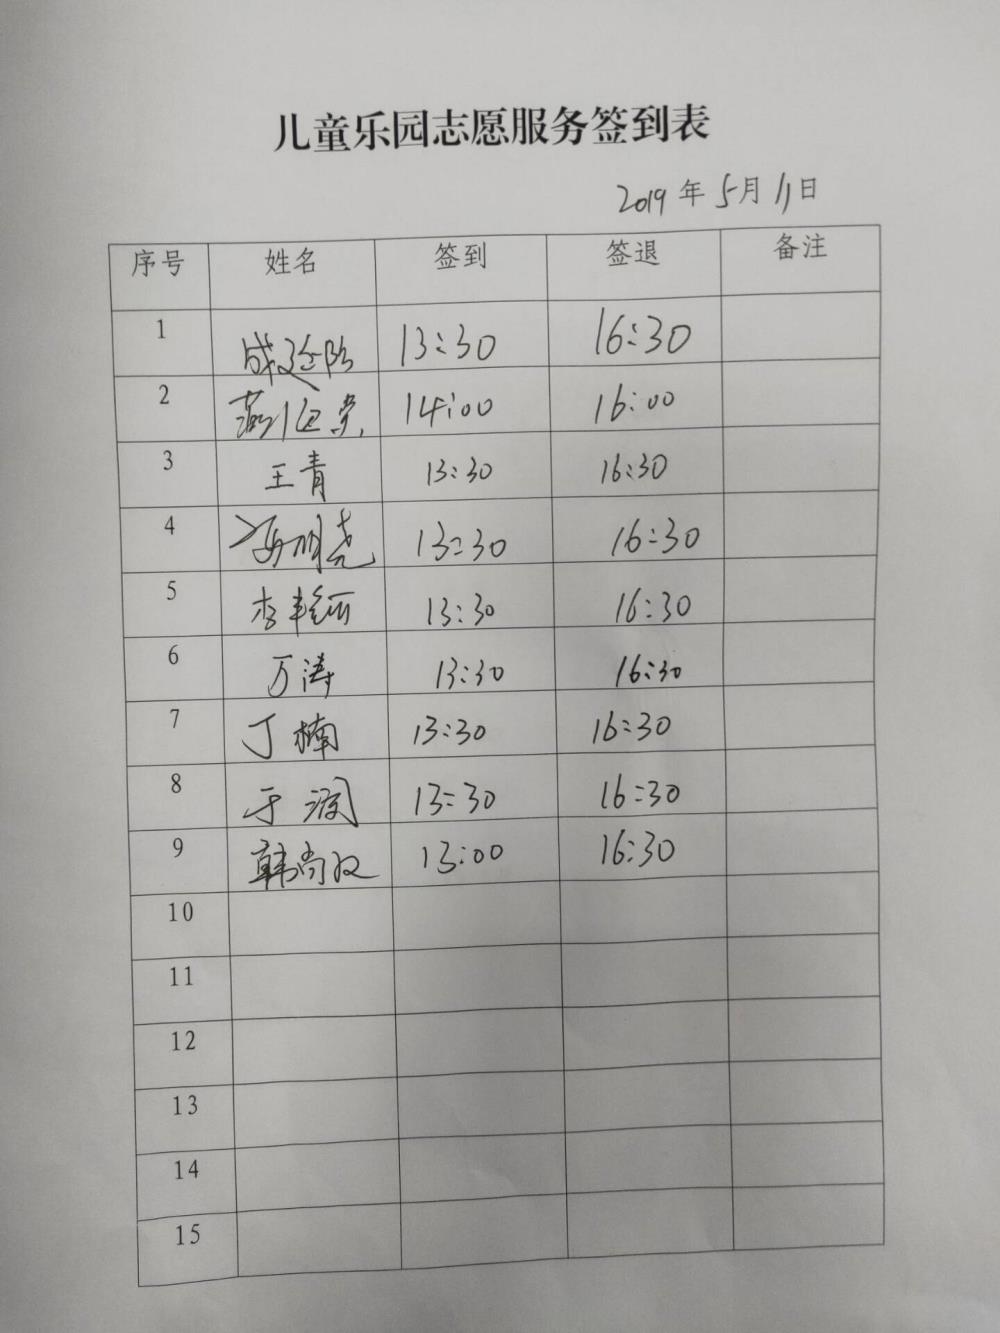 儿童乐园志愿服务签到表
2019 年 5 月 11 日
序号 姓名 签到 签退 备注
1 13:30 16:30
2 14:00 16:00
3 王青 13:30 16:30
4 冯明尧 13:30 16:30
5 李艳丽 13:30 16:30
6 万涛 13:30 16:30
7 丁楠 13:30 16:30
8 于澜 13:30 16:30
9 韩尚 13:00 16:30
10
11
12
13
14
15